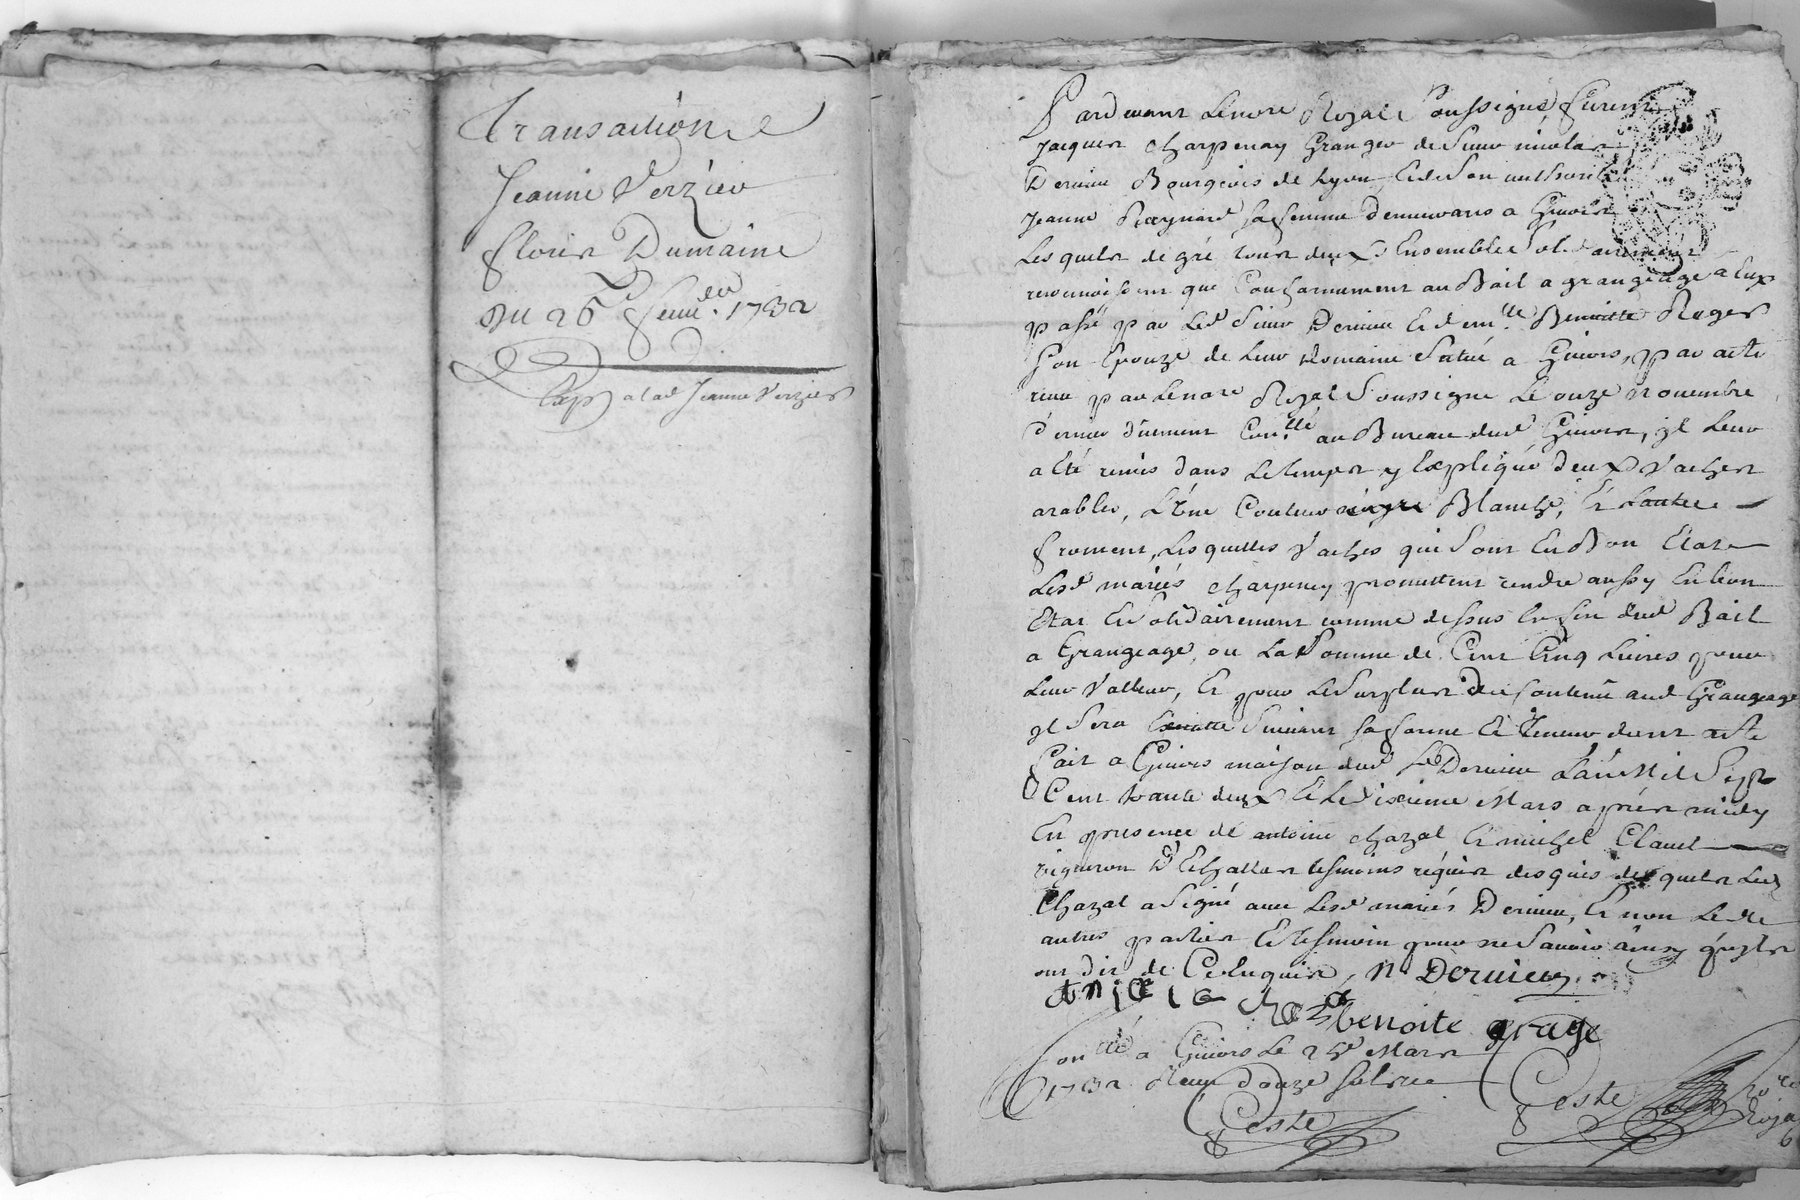 Transaction
Jeanne Verzieu
Floris Dumaine
Du 26e feuver 1732
Exp a lad Jeanne Verzier
Pardevant Le nore Royal soussigné, furent
Jacques Charpenay Granger de Sieur nicolas
Dervieu Bourgeois de Lyon, Et de Son authorité
Jeanne Raynard sa femme demeurans a Givors
Lesquels de gré tous deux Ensemble Solidairement
reconnoissent que Conformement au Bail a grangeage a Eux
passé par Led Sieur Dervieu Et demlle Benoitte Roges
Son Epouze de Leur Domaine Situé a Givors, par acte
receu par Le nore Royal Soussigné Le onze novembre
dernier düement Conllé au Bureau dud Givors, jl Leur
a Eté remis dans Le temps y Expliqué deux Vaches
arables, L'Une Couleur Blanche, Et Lautre
froment, Lesquelles Vaches qui Sont En Bon Etat
Lesd mariés Charpenay promettent rendre aussy En bon
Etat Et Solidairement comme dessus En fin dud Bail
a Grangeage, ou La Somme de Cent Cinq Livres pour
Leur Valleur, Et pour Le Surplus du Contenu aud Grangeage
jl Sera Suivant sa forme Et Teneur dont acte
Fait a Givors maison dud Sr Dervieu L'an Mil Sept
Cent trante deux Et Le dixieme Mars après midy
En presence de antoine Chazal Et michel Clavel
vigneron D'Echallas tesmoins réquis desquels Led
Chazal a Signé avec Lesd mariés Dervieu, Et non Les
autres parties Et tesmoin pour ne Savoir ainsy quils
ont dit de Ce Enquis, N. Dervieu
benoite
Conllé a Givors Le 24e Mars
1732 Receu douze sols
Coste
Coste
nore
Royal